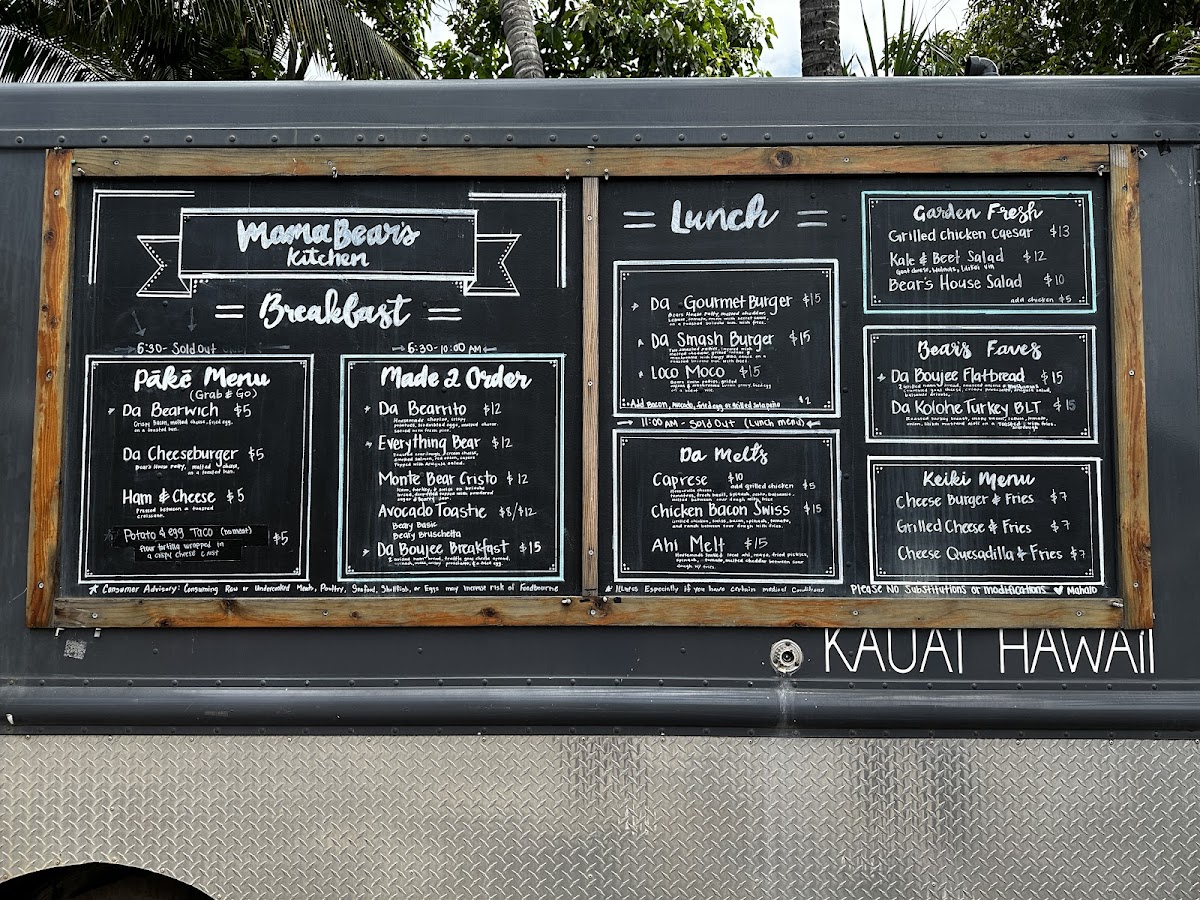 Mama Bear's
Kitchen
= Breakfast =
6:30 - Sold out
Pākē Menu
(Grab & Go)
Da Bearwich $5
Crispy bacon, melted cheese, fried egg,
on a toasted bun.
Da Cheeseburger $5
Bear's House Patty, melted cheese,
on a toasted bun.
Ham & Cheese $5
Pressed between a toasted
croissant.
Potato & egg Taco $5
flour tortilla wrapped in
a crispy cheese crust
6:30 - 10:00 AM
Made 2 Order
Da Bearrito $12
Everything Bear $12
Topped with Arugula salad.
Monte Bear Cristo $12
Avocado Toastie $8/$12
Beary Basic
Beary Bruschetta
Da Boujee Breakfast $15
* Consumer Advisory: Consuming Raw or Undercooked Meats, Poultry, Seafood, Shellfish, or Eggs may increase risk of Foodbourne
= Lunch =
Da Gourmet Burger $15
Bears House Patty, melted cheddar,
lettuce, tomato, onion with secret sauce,
on a toasted brioche bun with fries.
Da Smash Burger $15
Loco Moco $15
+Add Bacon, Avocado, fried egg or Grilled Jalapeño $2
11:00 AM - Sold Out (Lunch menu)
Da Melts
Caprese $10
add grilled chicken $5
Chicken Bacon Swiss $15
Grilled chicken, swiss, bacon, spinach, tomato,
and ranch between sour dough with fries.
Ahi Melt $15
* Illness Especially if you have certain medical Conditions
Garden Fresh
Grilled Chicken Caesar $13
Kale & Beet Salad $12
Goat cheese, Walnuts, Lilikoi Vin
Bear's House Salad $10
add chicken $5
Bear's Faves
Da Boujee Flatbread $15
Da Kolohe Turkey BLT $15
Keiki Menu
Cheese Burger & Fries $7
Grilled Cheese & Fries $7
Cheese Quesadilla & Fries $7
Please No Substitutions or modifications ♥ Mahalo
KAUAI HAWAII